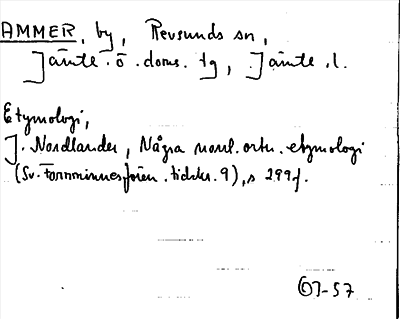 AMMER, by, Revsunds sn,
Jämte. ö. doms. tg, Jämte. l.
Etymologi,
J. Nordlander, Några norrl. ortn. etymologi
(Sv. Fornminnesfören. tidskr. 9), s 299f.
OJ-57